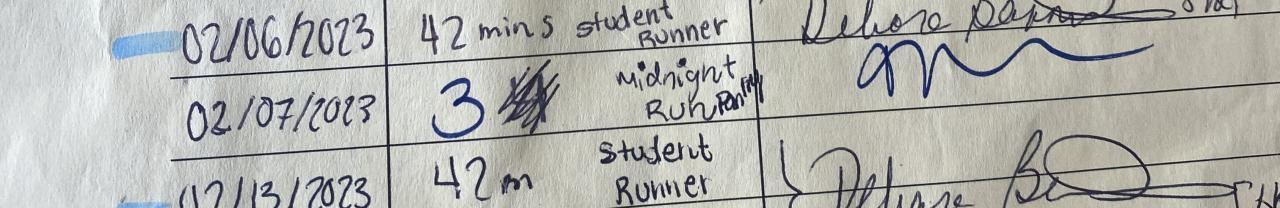 02/06/2023 42 mins student Runner
02/07/2023 3 Midnight Run
/13/2023 42m student Runner